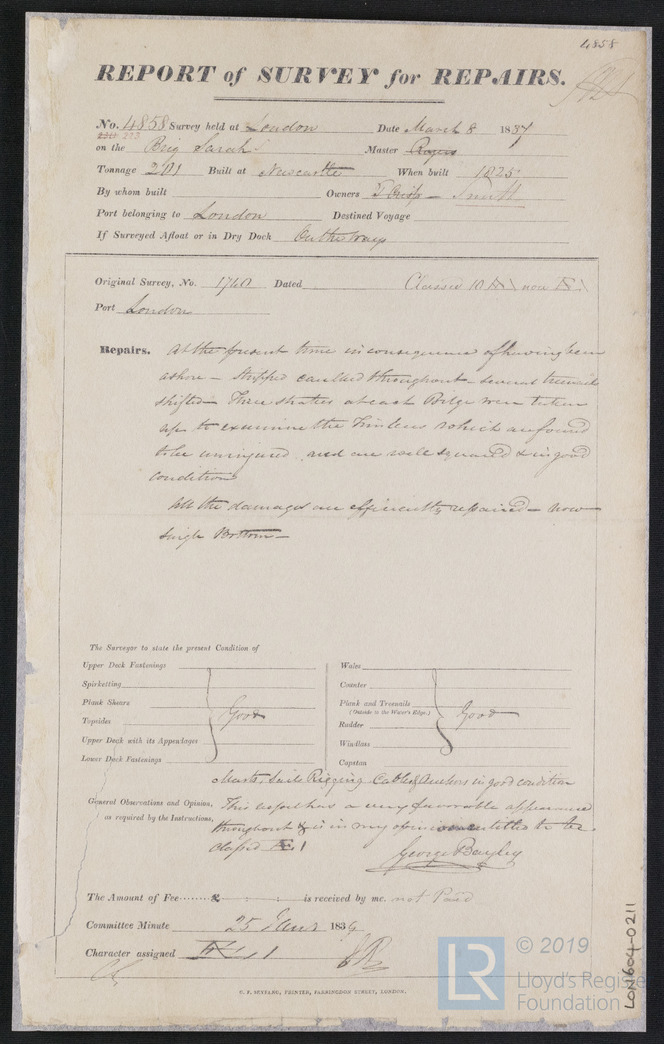 4858
REPORT of SURVEY for REPAIRS.
No. 4858 Survey held at London Date March 8 1837
on the Brig Sarah Master Rogers
Tonnage 201 Built at Newcastle When built 1825
By whom built Owners T Crisp - Smith
Port belonging to London Destined Voyage
If Surveyed Afloat or in Dry Dock On the Ways
Original Survey, No. 1740 Dated Classed 10 now
Port London
Repairs. At the present time in consequence of having been
ashore - stripped caulked throughout - several treenails
shifted - Three strakes at each Bilge were taken
up to examine the Timbers which are found
to be uninjured and are well squared & in good
condition
All the damages are efficiently repaired - now
single Bottom -
The Surveyor to state the present Condition of
Upper Deck Fastenings
Spirketting
Plank Shears
Topsides
Upper Deck with its Appendages
Lower Deck Fastenings
Good
Wales
Counter
Plank and Treenails
(Outside to the Water's Edge.)
Rudder
Windlass
Capstan
Good
Masts, Sails Rigging Cables Anchors in good condition
General Observations and Opinion, This vessel has a very favorable appearance
as required by the Instructions, throughout & is in my opinion entitled to be
classed Æ 1
George Bayley
The Amount of Fee £ : : is received by me, not Paid
Committee Minute 25 183
Character assigned 1
C. F. SEYFANG, PRINTER, FARRINGDON STREET, LONDON.
LON604-0211
LR
© 2019
Lloyd's Register
Foundation